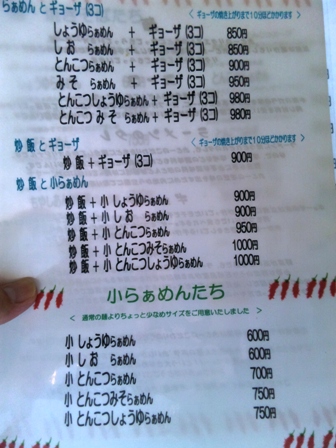 らぁめん と ギョーザ (3コ) < ギョーザの焼き上がりまで10分ほどかかります >
しょうゆらぁめん + ギョーザ (3コ) 850円
しお らぁめん + ギョーザ (3コ) 850円
とんこつらぁめん + ギョーザ (3コ) 900円
みそ らぁめん + ギョーザ (3コ) 950円
とんこつしょうゆらぁめん + ギョーザ (3コ) 980円
とんこつ みそ らぁめん + ギョーザ (3コ) 980円
炒飯 と ギョーザ < ギョーザの焼き上がりまで10分ほどかかります >
炒飯 + ギョーザ (3コ) 900円
炒飯 と 小らぁめん
炒飯 + 小 しょうゆらぁめん 900円
炒飯 + 小 しお らぁめん 900円
炒飯 + 小 とんこつらぁめん 950円
炒飯 + 小 とんこつみそらぁめん 1000円
炒飯 + 小 とんこつしょうゆらぁめん 1000円
小らぁめんたち
< 通常の麺よりちょっと少なめサイズをご用意いたしました >
小 しょうゆらぁめん 600円
小 しお らぁめん 600円
小 とんこつらぁめん 700円
小 とんこつみそらぁめん 750円
小 とんこつしょうゆらぁめん 750円